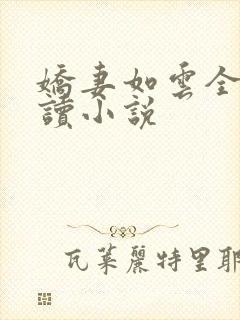 嬌妻如雲全
讀小説
瓦萊麗特里耶